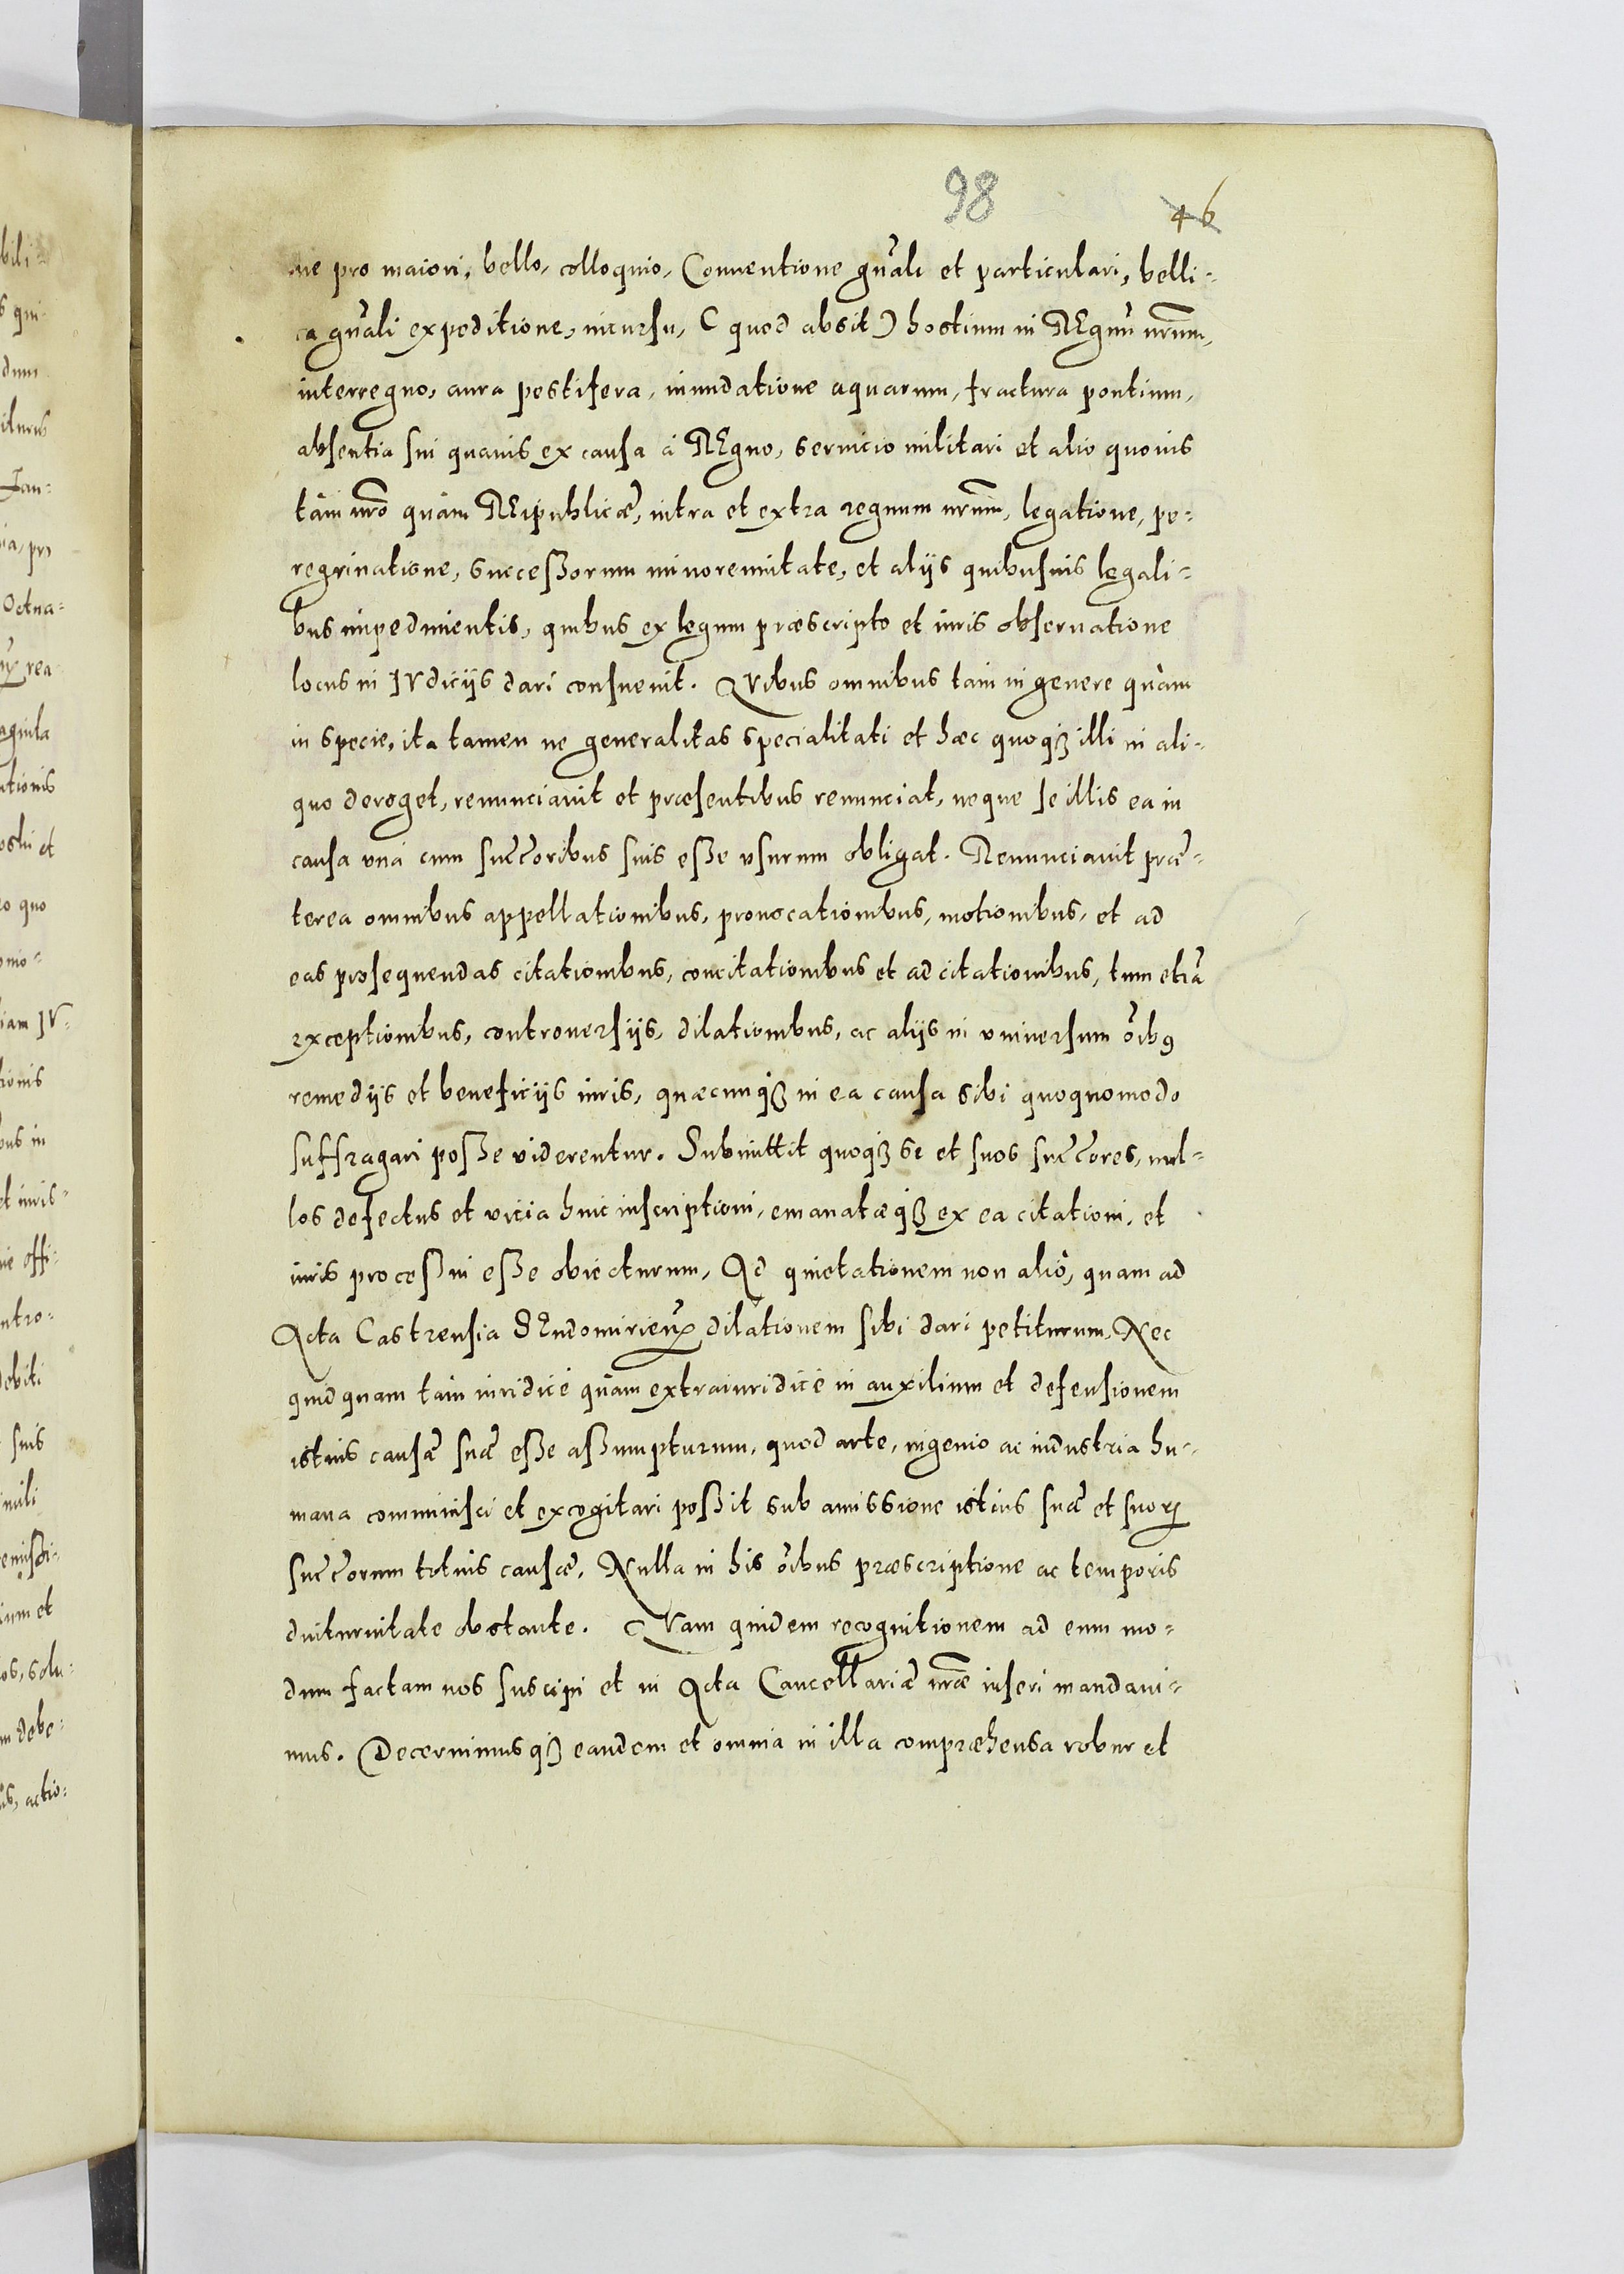 98
46
ne pro maiori, bello, colloquio, Conventione gñali et particulari, belli-
ca gñali expeditione, incursu, (quod absit) hostium in REgnũ nr̃um,
interregno, aura pestifera, inundatione aquarum, fractura pontium,
absentia sui quavis ex causa à REgno, servicio militari et alio quovis
tàm nr̃o quàm REipublicæ, intra et extra regnum nr̃um, legatione, pe-
regrinatione, successorum minorennitate, et alijs quibusvis legali-
bus impedimentis, quibus ex legum præscripto et iuris observatione
locus in IVdicijs dari consuevit. QVibus omnibus tàm in genere quàm
in specie, ita tamen ne generalitas specialitati et hæc quoqȝ illi in ali-
quo deroget, renunciavit et præsentibus renunciat, neque se illis ea in
causa unà cum succ̃oribus suis esse usurum obligat. Renunciavit præ-
terea omnibus appellationibus, provocationibus, motionibus, et ad
eas prosequendas citationibus, concitationibus et adcitationibus, tum etiã
exceptionibus, controversijs, dilationibus, ac alijs in universum õib9
remedijs et beneficijs iuris, quæcunqȝ in ea causa sibi quoquomodo
suffragari posse viderentur. Submittit quoqȝ se et suos succ̃ores, nul-
los defectus et vicia huic inscriptioni, emanatæqȝ ex ea citationi, et
iuris processui esse obiecturum, Ad quietationem non aliò, quam ad
Acta Castrensia SEndomirieñ dilationem sibi dari petiturum, Nec
quidquam tàm iuridicè quàm extraiuridicè in auxilium et defensionem
istius causæ suæ esse assumpturum, quod arte, ingenio ac industria hu-
mana comminisci et excogitari possit sub amissione istius suæ et suorꝝ
succ̃orum totius causæ, Nulla in his õibus præscriptione ac temporis
diuturnitate obstante. QVam quidem recognitionem ad eum mo-
dum factam nos suscipi et in Acta Cancellariæ nr̃æ inseri mandavi-
mus. Decernimusqȝ eandem et omnia in illa compræhensa robur et